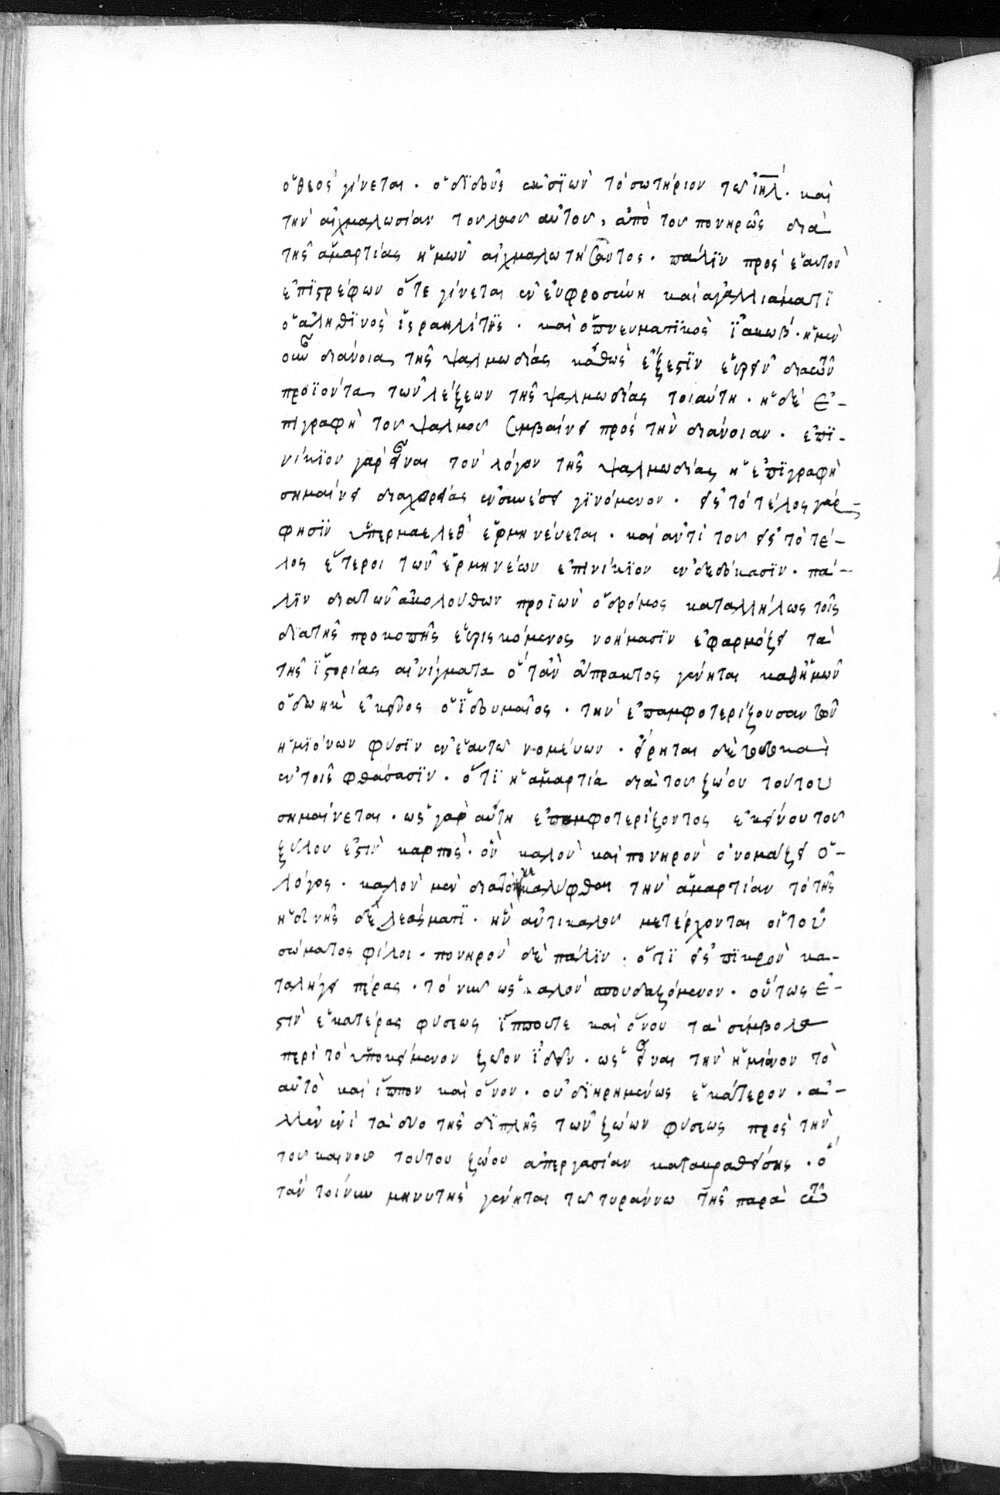 ὁ θεὸς γίνεται· ὁ διδοὺς ἐκ σιὼν τὸ σωτήριον τῶ ἰηλ· καὶ
τὴν αἰχμαλωσίαν τοῦ λαοῦ αὐτοῦ, ἀπὸ τοῦ πονηρῶς διὰ
τῆς ἁμαρτίας ἡμῶν αἰχμαλωτήσαντος· πάλιν πρὸς ἑαυτὸν
ἐπιστρέφων ὅτε γίνεται ἐν εὐφροσύνη καὶ ἀγαλλιάματι
ὁ ἀληθινὸς ἰσραηλίτης· καὶ ὁ πνευματικὸς ἰακώβ· ἡ μὲν
οὖν διάνοια τῆς ψαλμωδίας καθὼς ἔξεστιν εὑρεῖν διὰ τῶν
προϊόντα τῶν λέξεων τῆς ψαλμωδίας τοιαύτη· ἡ δὲ ἐ-
πιγραφὴ τοῦ ψαλμοῦ συμβαίνει πρὸς τὴν διάνοιαν· ἐπι-
νίκιον γὰρ εἶναι τὸν λόγον τῆς ψαλμωδίας ἡ ἐπιγραφὴ
σημαίνει διὰ χορείας ἐν συνέσει γινόμενον· εἰς τὸ τέλος γάρ
φησιν ὑπερμαελὲθ ἑρμηνεύεται· καὶ ἀντὶ τοῦ εἰς τὸ τέ-
λος ἕτεροι τῶν ἑρμηνέων ἐπινίκιον ἐκδεδώκασιν· πά-
λιν διὰ τῶν ἀκολούθων προϊὼν ὁ δρόμος καταλλήλως τοῖς
διὰ τῆς προκοπῆς εὑρισκόμενος νοήμασιν ἐφαρμόζει τὰ
τῆς ἱστορίας αἰνίγματα ὅταν ἄπρακτος γένηται καθ' ἡμῶν
ὁ δωὴκ ἐκεῖνος ὁ ἰδουμαῖος· τὴν ἐπαμφοτερίζουσαν τῶν
ἡμιόνων φύσιν ἐν ἑαυτῶ νομεύων· εἴρηται δὲ τοῦτο καὶ
ἐν τοῖς φθάσασιν· ὅτι ἡ ἁμαρτία διὰ τοῦ ζώου τούτου
σημαίνεται· ὡς γὰρ αὕτη ἐπαμφοτερίζοντος ἐκείνου τοῦ
ξύλου ἐστὶ καρπὸς· ὃν καλὸν καὶ πονηρὸν ὀνομάζει ὁ
λόγος· καλὸν μὲν διὰ τὸ καλυφθῆναι τὴν ἁμαρτίαν τὸ τῆς
ἡδονῆς δελεάσματι· ἣν ἀντὶ καλοῦ μετέρχονται οἱ τοῦ
σώματος φίλοι· πονηρὸν δὲ πάλιν· ὅτι εἰς πικρὸν κα-
ταλήγει πέρας· τὸ νῦν ὡς καλὸν σπουδαζόμενον· οὕτως ἐ-
στὶν ἑκατέρας φύσεως ἵππου τε καὶ ὄνου τὰ σύμβολα
περὶ τὸ ὑποκείμενον ζῶον ἰδεῖν· ὡς εἶναι τὴν ἡμίονον τὸ
αὐτὸ καὶ ἵππον καὶ ὄνον· οὐ διηρημένως ἑκάτερον· ἀ-
λλ' ἐν ἑνὶ τὰ δύο τῆς διπλῆς τῶν ζώων φύσεως πρὸς τὴν
τοῦ καινοῦ τούτου ζώου ἀπεργασίαν κατακραθείσης· ὅ
ταν τοίνυν μηνυτὴς γένηται τῶ τυράννω τῆς παρὰ τῶ